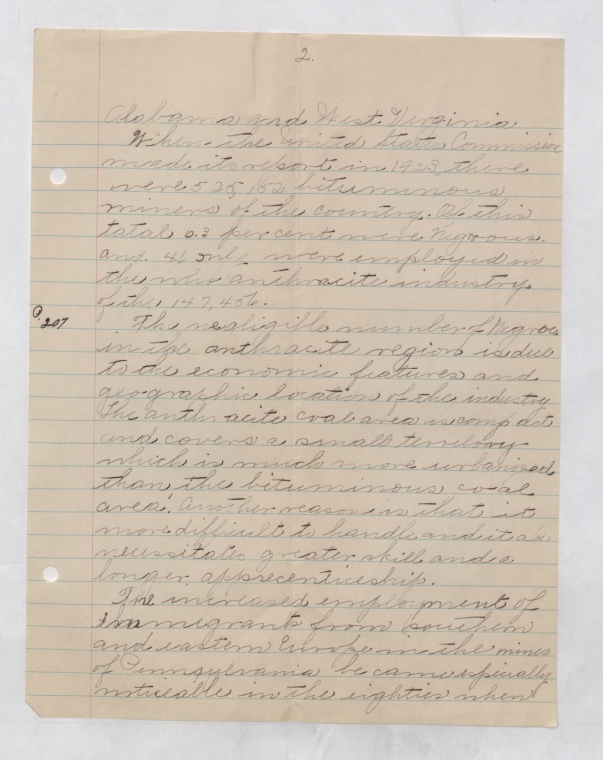 2.
Alabama and West Virginia
When the United States Commission
made its report in 1923, there
were 525,152 bituminous
miners of the country. Of this
total per cent were Negroes.
and 46 only were employed in
the anthracite industry
of the 147,456.
P. 207
The negligible number of Negroes
in the anthracite region is due
to the economic features and
geographic location of the industry
The anthracite coal area is compact
and covers a small territory
which is much more urbanized
than the bituminous coal
area. Another reason is that it
more difficult to handle and it
necessitates greater skill and a
longer apprecenticeship.
The increased employment of
immigrants from southern
and eastern Europe in the mines
of Pennsylvania became especially
noticeable in the eighties when